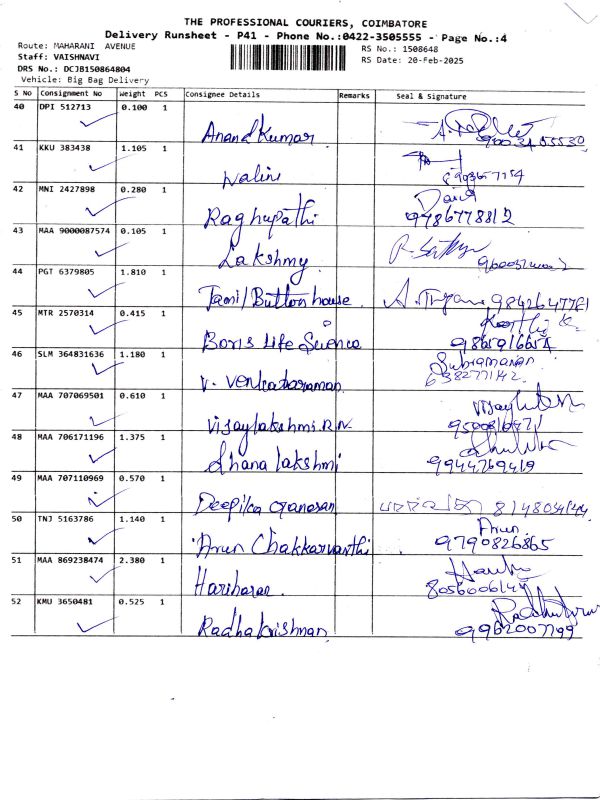 THE PROFESSIONAL COURIERS, COIMBATORE
Delivery Runsheet - P41 - Phone No.:0422-3505555 - Page No.:4
Route: MAHARANI AVENUE
RS No.: 1508648
Staff: VAISHNAVI
RS Date: 20-Feb-2025
DRS No.: DCJB150864804
Vehicle: Big Bag Delivery
S No Consignment No Weight PCS Consignee Details Remarks Seal & Signature
40 DPI 512713 0.100 1
Anand Kumar
41 KKU 383438 1.105 1
Nalini
42 MNI 2427898 0.280 1
Raghupathi 9786778812
43 MAA 9000087574 0.105 1
Lakshmy
44 PGT 6379805 1.810 1
Tamil Button house
45 MTR 2570314 0.415 1
Boris Life Science 9865916654
46 SLM 364831636 1.180 1 Subramanian
V. Venkataraman
47 MAA 707069501 0.610 1
Vijaylakshmi.R.N
48 MAA 706171196 1.375 1
Dhana lakshmi 9944769419
49 MAA 707110969 0.570 1
Deepika Ganesan
50 TNJ 5163786 1.140 1 Arun
Arun Chakkarvarthi 9790826865
51 MAA 869238474 2.380 1
Hariharan
52 KMU 3650481 0.525 1
Radhakrishnan 9962007799